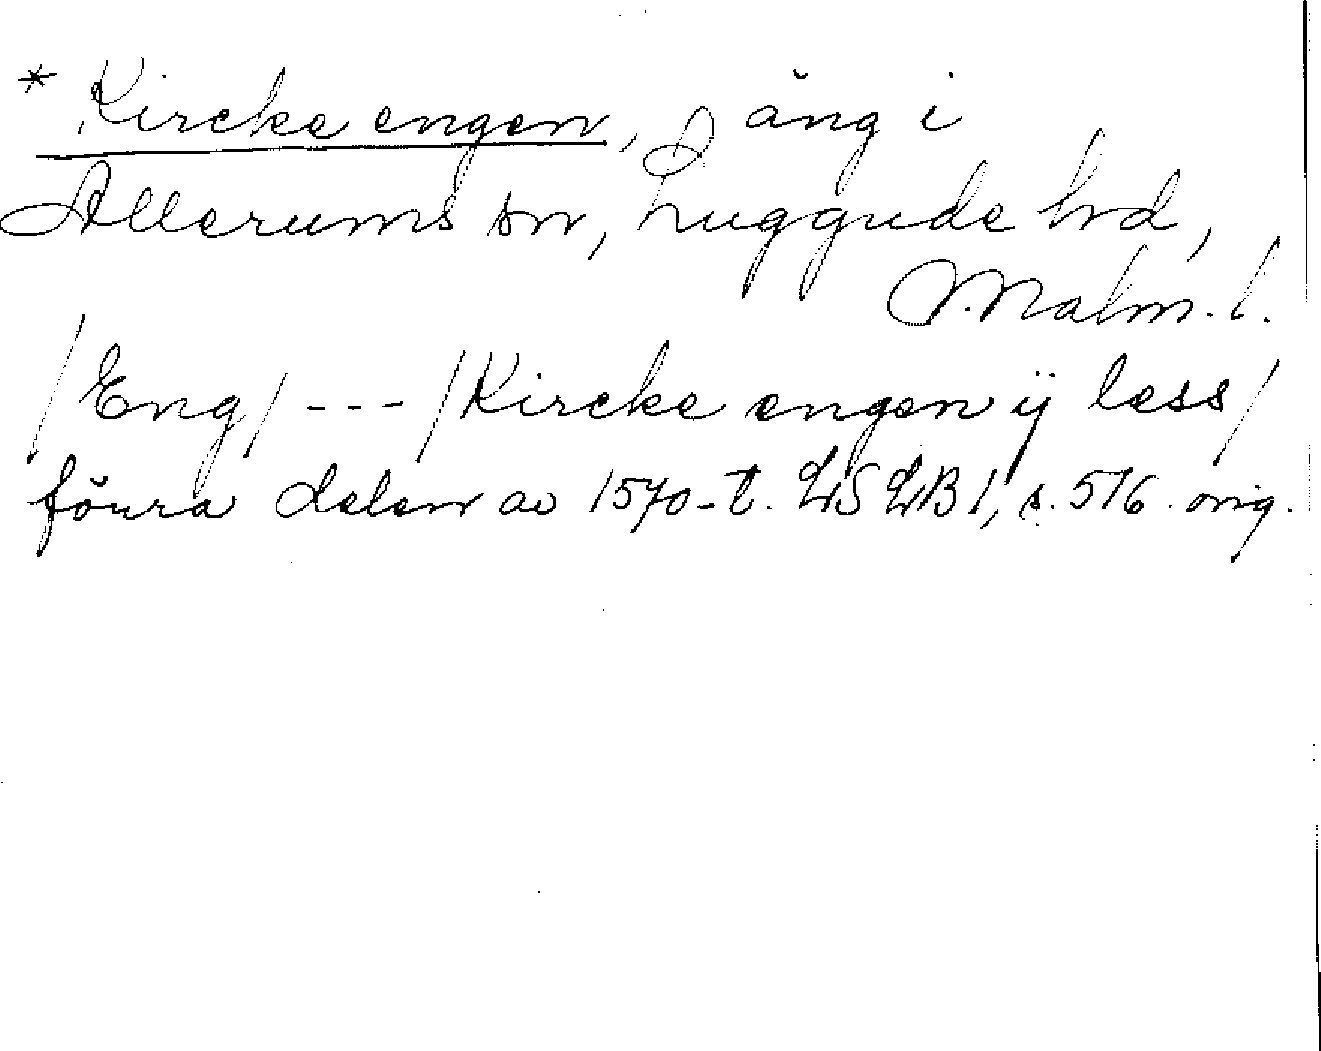 * Kircke engen, äng i
Allerums sn, Luggude hd,
Malm. l.
/Eng/ --- /Kircke engen ij læss/
förra delen av 1570-t. LSLB 1, s. 516. orig.